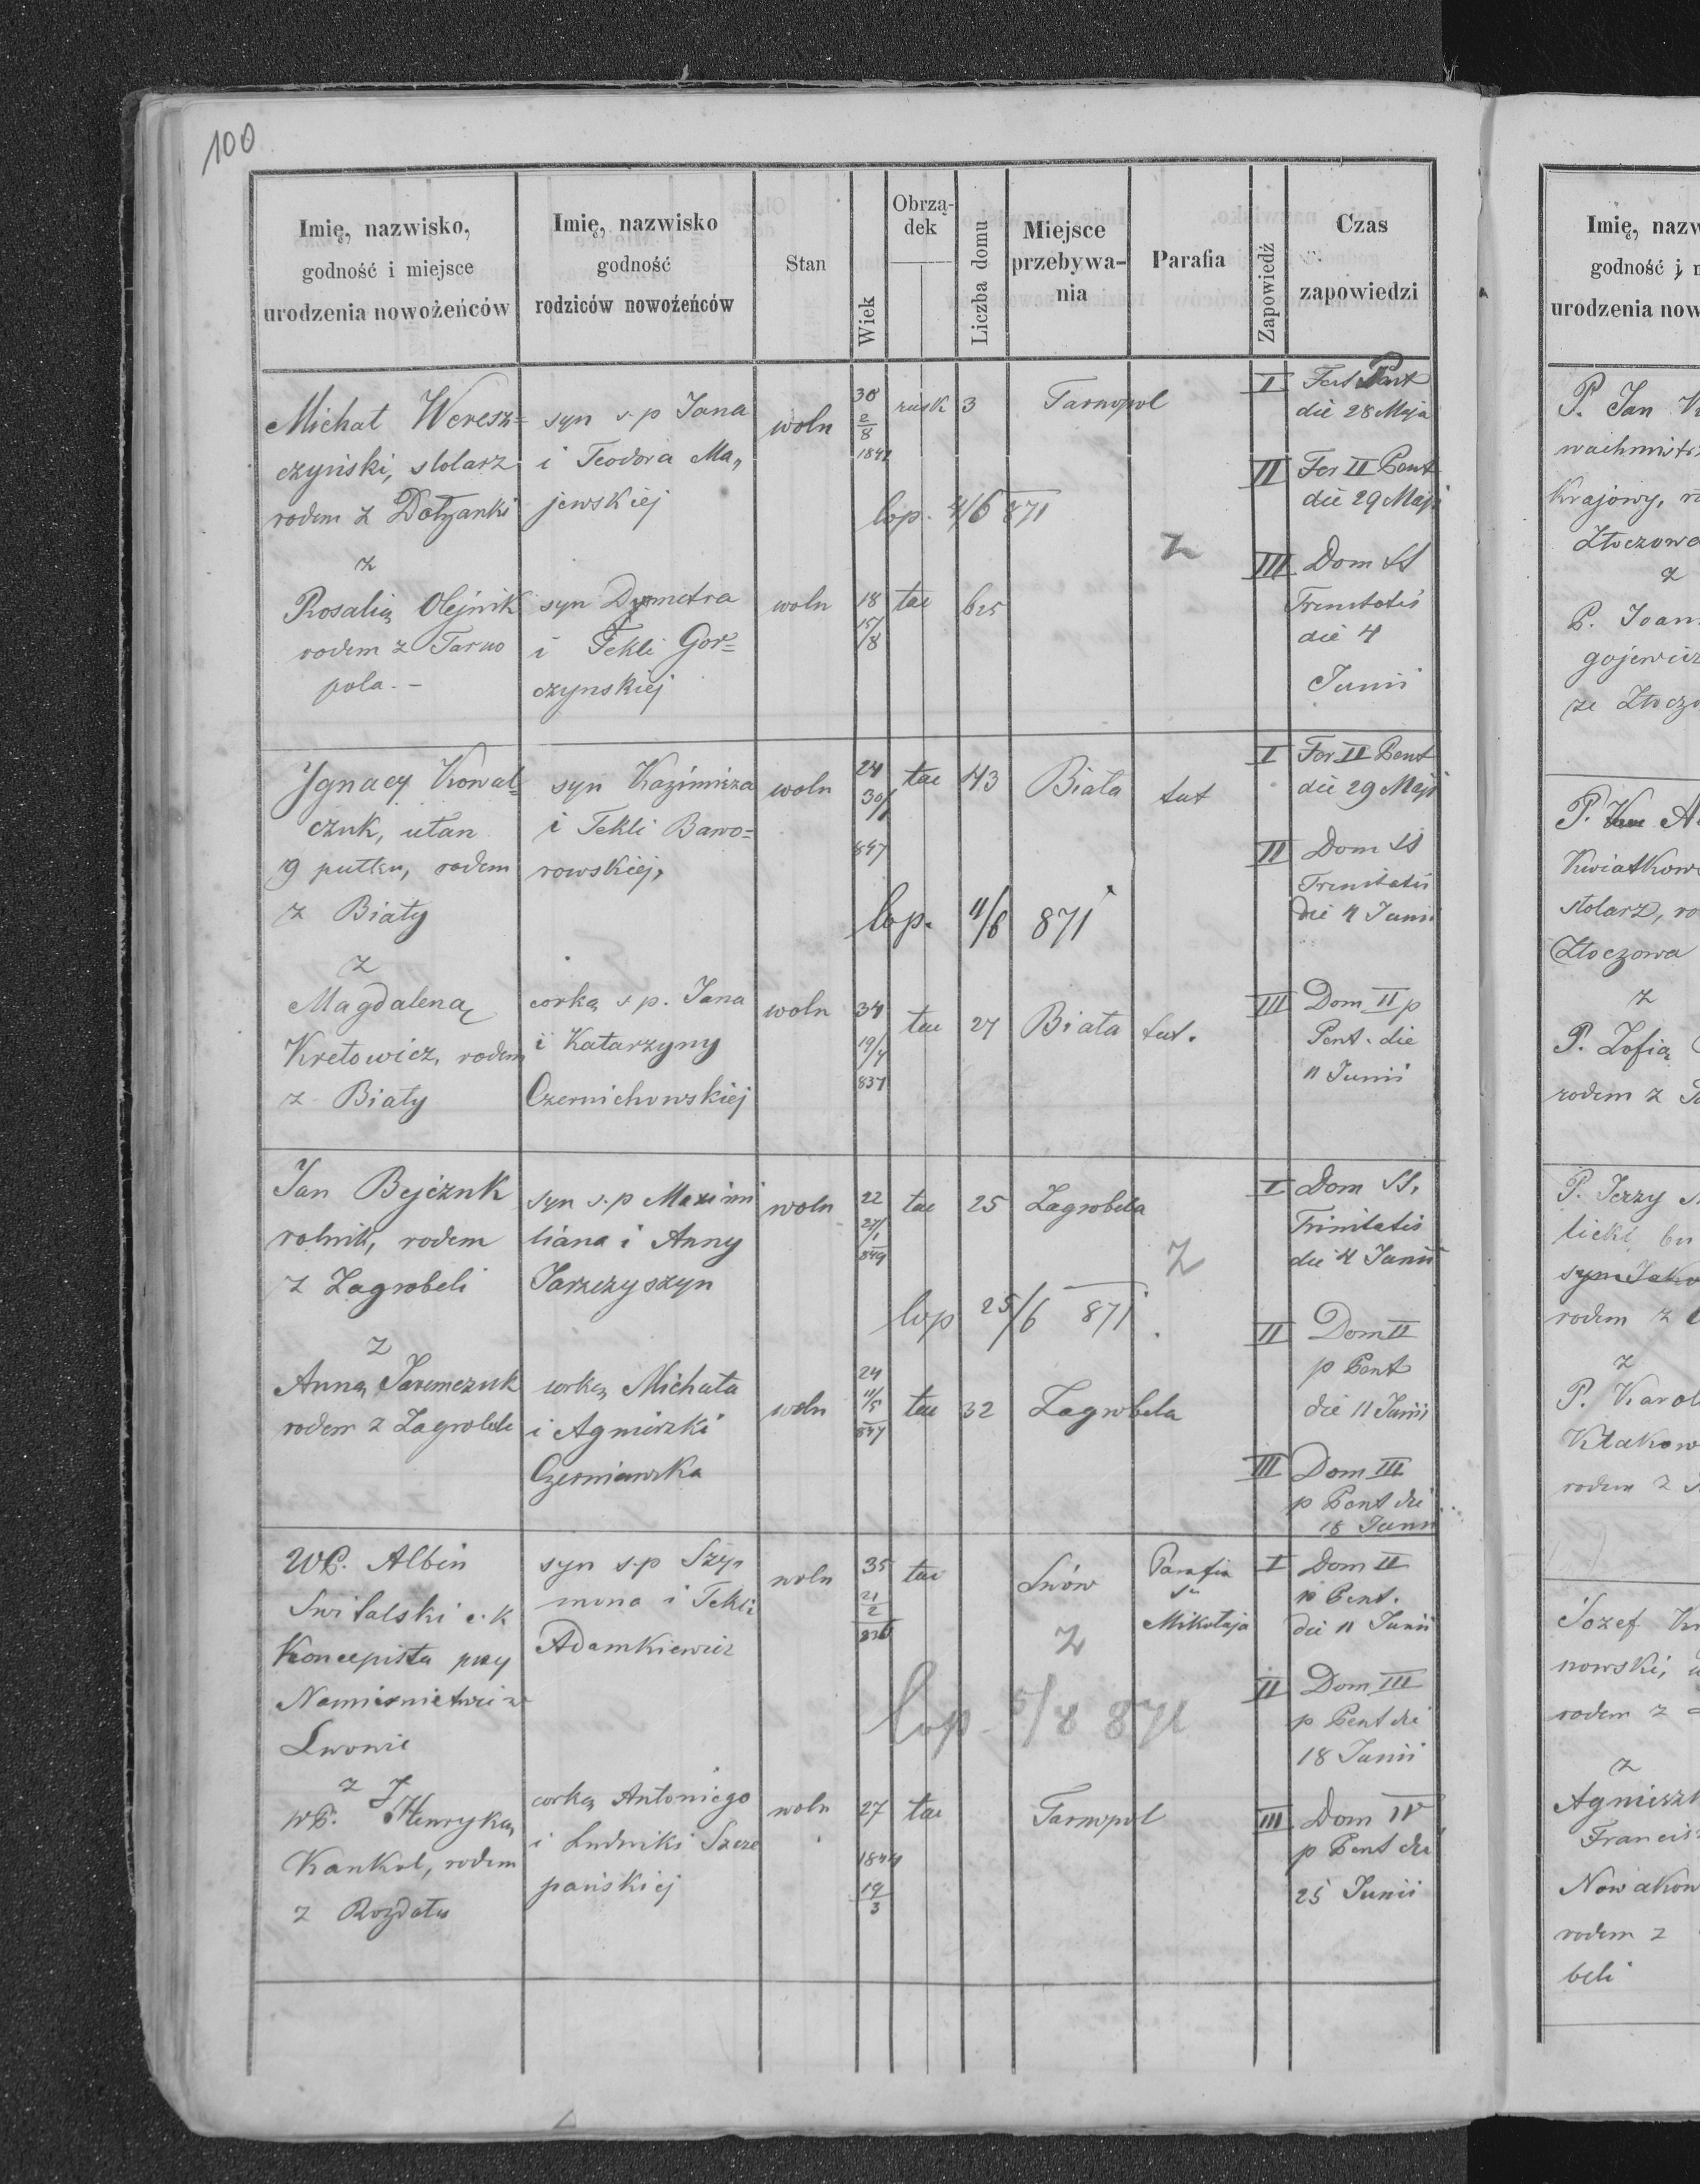 100
Imię, nazwisko,
godność i miejsce
urodzenia nowożeńców
Imię, nazwisko
godność
rodziców nowożeńców
Stan
Wiek
Obrzą-
dek
Liczba domu
Miejsce
przebywa-
nia
Parafia
Zapowiedź
Czas
zapowiedzi
Michał Weresz=
czyński, stolarz
rodem z Dołżanki
z
Rosalią Olejnik
rodem z Tarno
pola. -
syn s.p Jana
i Teodora Ma„
jewskiej
syn Dymetra
i Tekli Gor=
czynskiej
woln
30
2/8
1841
rusk
3
Tarnopol
lop. 4/6 871
z
woln
18
15/8
tac
625
I
die 28 Maja
II Fer II Pent
die 29 Maji
III Dom SS
Trinitatis
die 4
Junii
Ignacy Kowal=
czuk, ułan
9 pułku, rodem
z Biały
z
Magdaleną
Kretowicz, rodem
z Biały
syn Kazimirza
i Tekli Bawo=
rowskiej,
corką s p. Jana
i Katarzyny
Czernichowskiej
woln
24
30/1
847
tac
43
Biała
tut
lop. 11/6 871
woln
34
19/7
837
tac
27
Biała
tut.
I Fer II Pent
die 29 Maji
II Dom SS
Trinitatis
die 4 Junii
III Dom II p
Pent. die
11 Junii
Jan Bejczuk
rolnik, rodem
z Zagrobeli
z
Anną Jaremczuk
rodem z Zagrobele
syn s.p Maximi
liana i Anny
Jarzczyszyn
corką Michała
i Agnieszki
Czerniawska
woln
22
27/1
849
tac
25
Zagrobela
z
lop 25/6 871
woln
24
11/5
847
tac
32
Zagrobela
I Dom SS.
Trinitatis
die 4 Junii
II Dom II
p Pent
die 11 Junii
III Dom III
p Pent die
18 Junii
WP. Albin
Switalski c. k
Koncepista przy
Namiesnictwie w
Lwowie
z
WP. Henryką
Kankol, rodem
z Rozdołu
syn s.p Szy„
mona i Tekli
Adamkiewicz
corką Antoniego
i Ludwiki Szcze
pańskiej
woln
35
21/2
836
tac
Lwów
Parafia
Sw
Mikołaja
z
lop - 5/8 871
woln
27
1844
19/3
tac
Tarnopol
I Dom II
p Pent.
die 11 Junii
II Dom III
p Pent die
18 Junii
III Dom IV
p Pent die
25 Junii
Imię, nazw
godność i m
urodzenia now
P. Jan
wachmistrz
Krajowy, ro
Złoczowa
z
P. Joan
gojewicz
ze Złoczo
P.
Kwiatkow
stolarz, ro
Złoczowa
z
P. Zofią
rodem z
P. Jerzy
licki
rodem z
z
P. Karol
Kłakow
rodem z
Jozef
nowski,
rodem z
z
Agnieszk
Francis
Nowakow
rodem z
beli